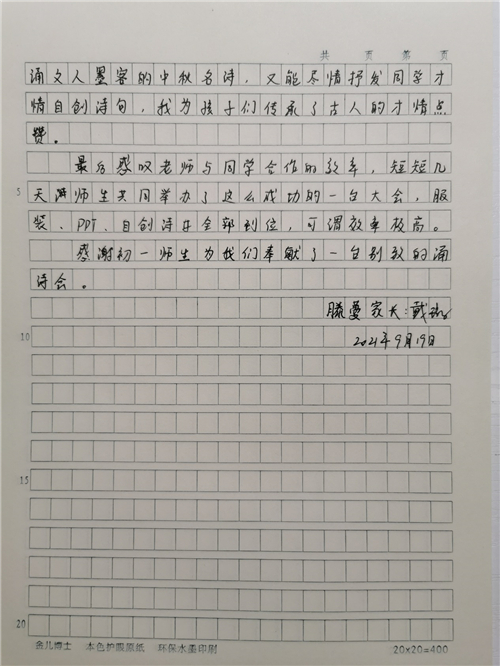 共 页 第 页
诵文人墨客的中秋名诗，又能尽情抒发同学才
情自创诗句，我为孩子们传承了古人的才情点
赞。
最后感叹老师与同学合作的效率，短短几
5 天师生共同举办了这么成功的一台大会，服
装、PPT、自创诗全部到位，可谓效率极高。
感谢初一师生为我们奉献了一台别致的诵
诗会。
滕蔓家长：戴
10 2021年9月19日
15
20
金儿博士 本色护眼原纸 环保水墨印刷 20×20=400